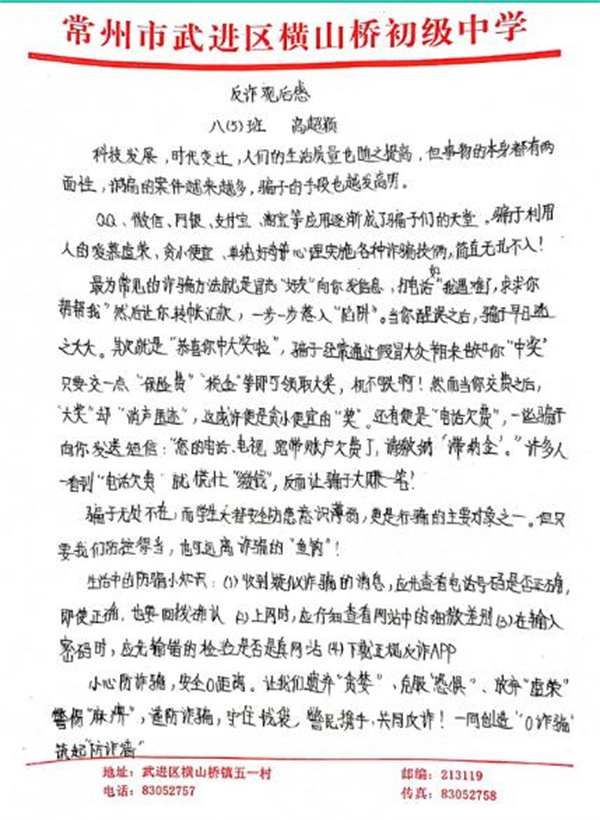 常州市武进区横山桥初级中学
反诈观后感
八(5)班 高超颖
科技发展，时代变迁，人们的生活质量也随之提高，但事物的本身都有两
面性，诈骗的案件越来越多，骗子的手段也越发高明。
QQ、微信、网银、支付宝、淘宝等应用逐渐成了骗子们的天堂。骗子利用
人的爱慕虚荣、贪小便宜、单纯好奇等心理实施各种诈骗伎俩，简直无孔不入！
最为常见的诈骗方法就是冒充“好友”向你发信息，打电话如“我遇难了，求求你
帮帮我”然后让你转帐汇款，一步一步落入“陷阱”。当你醒误之后，骗子早已逃
之夭夭。其次就是“恭喜你中大奖啦”，骗子经常通过假冒大众节目来告知你“中奖”
只要交一点“保险费”“税金”等即可领取大奖，机不可失啊！然而当你交费之后，
“大奖”却“消声匿迹”，这或许便是贪小便宜的“奖”。还有便是“电话欠费”，一些骗子
向你发送短信：“您的电话、电视、宽带账户欠费了，请缴纳‘滞纳金’。”许多人
一看到“电话欠费”就慌忙“缴钱”，反而让骗子大赚一笔！
骗子无处不在，而学生大都安全防患意识薄弱，更是行骗的主要对象之一。但只
要我们防控得当，也可远离诈骗的“鱼钩”！
生活中的防骗小知识：(1)收到疑似诈骗的消息，应先查看电话号码是否正确，
即使正确，也要回拨确认 (2)上网时，应仔细查看网站中的细微差别(3)在输入
密码时，应先输错的检验是否是真网站 (4)下载正规反诈APP
小心防诈骗，安全0距离。让我们摒弃“贪婪”、克服“恐惧”、放弃“虚荣”
警惕“麻痹”，谨防诈骗，守住钱袋，警民携手，共同反诈！一同创造“0诈骗”
筑起“防诈墙”
地址：武进区横山桥镇五一村 邮编：213119
电话：83052757 传真：83052758